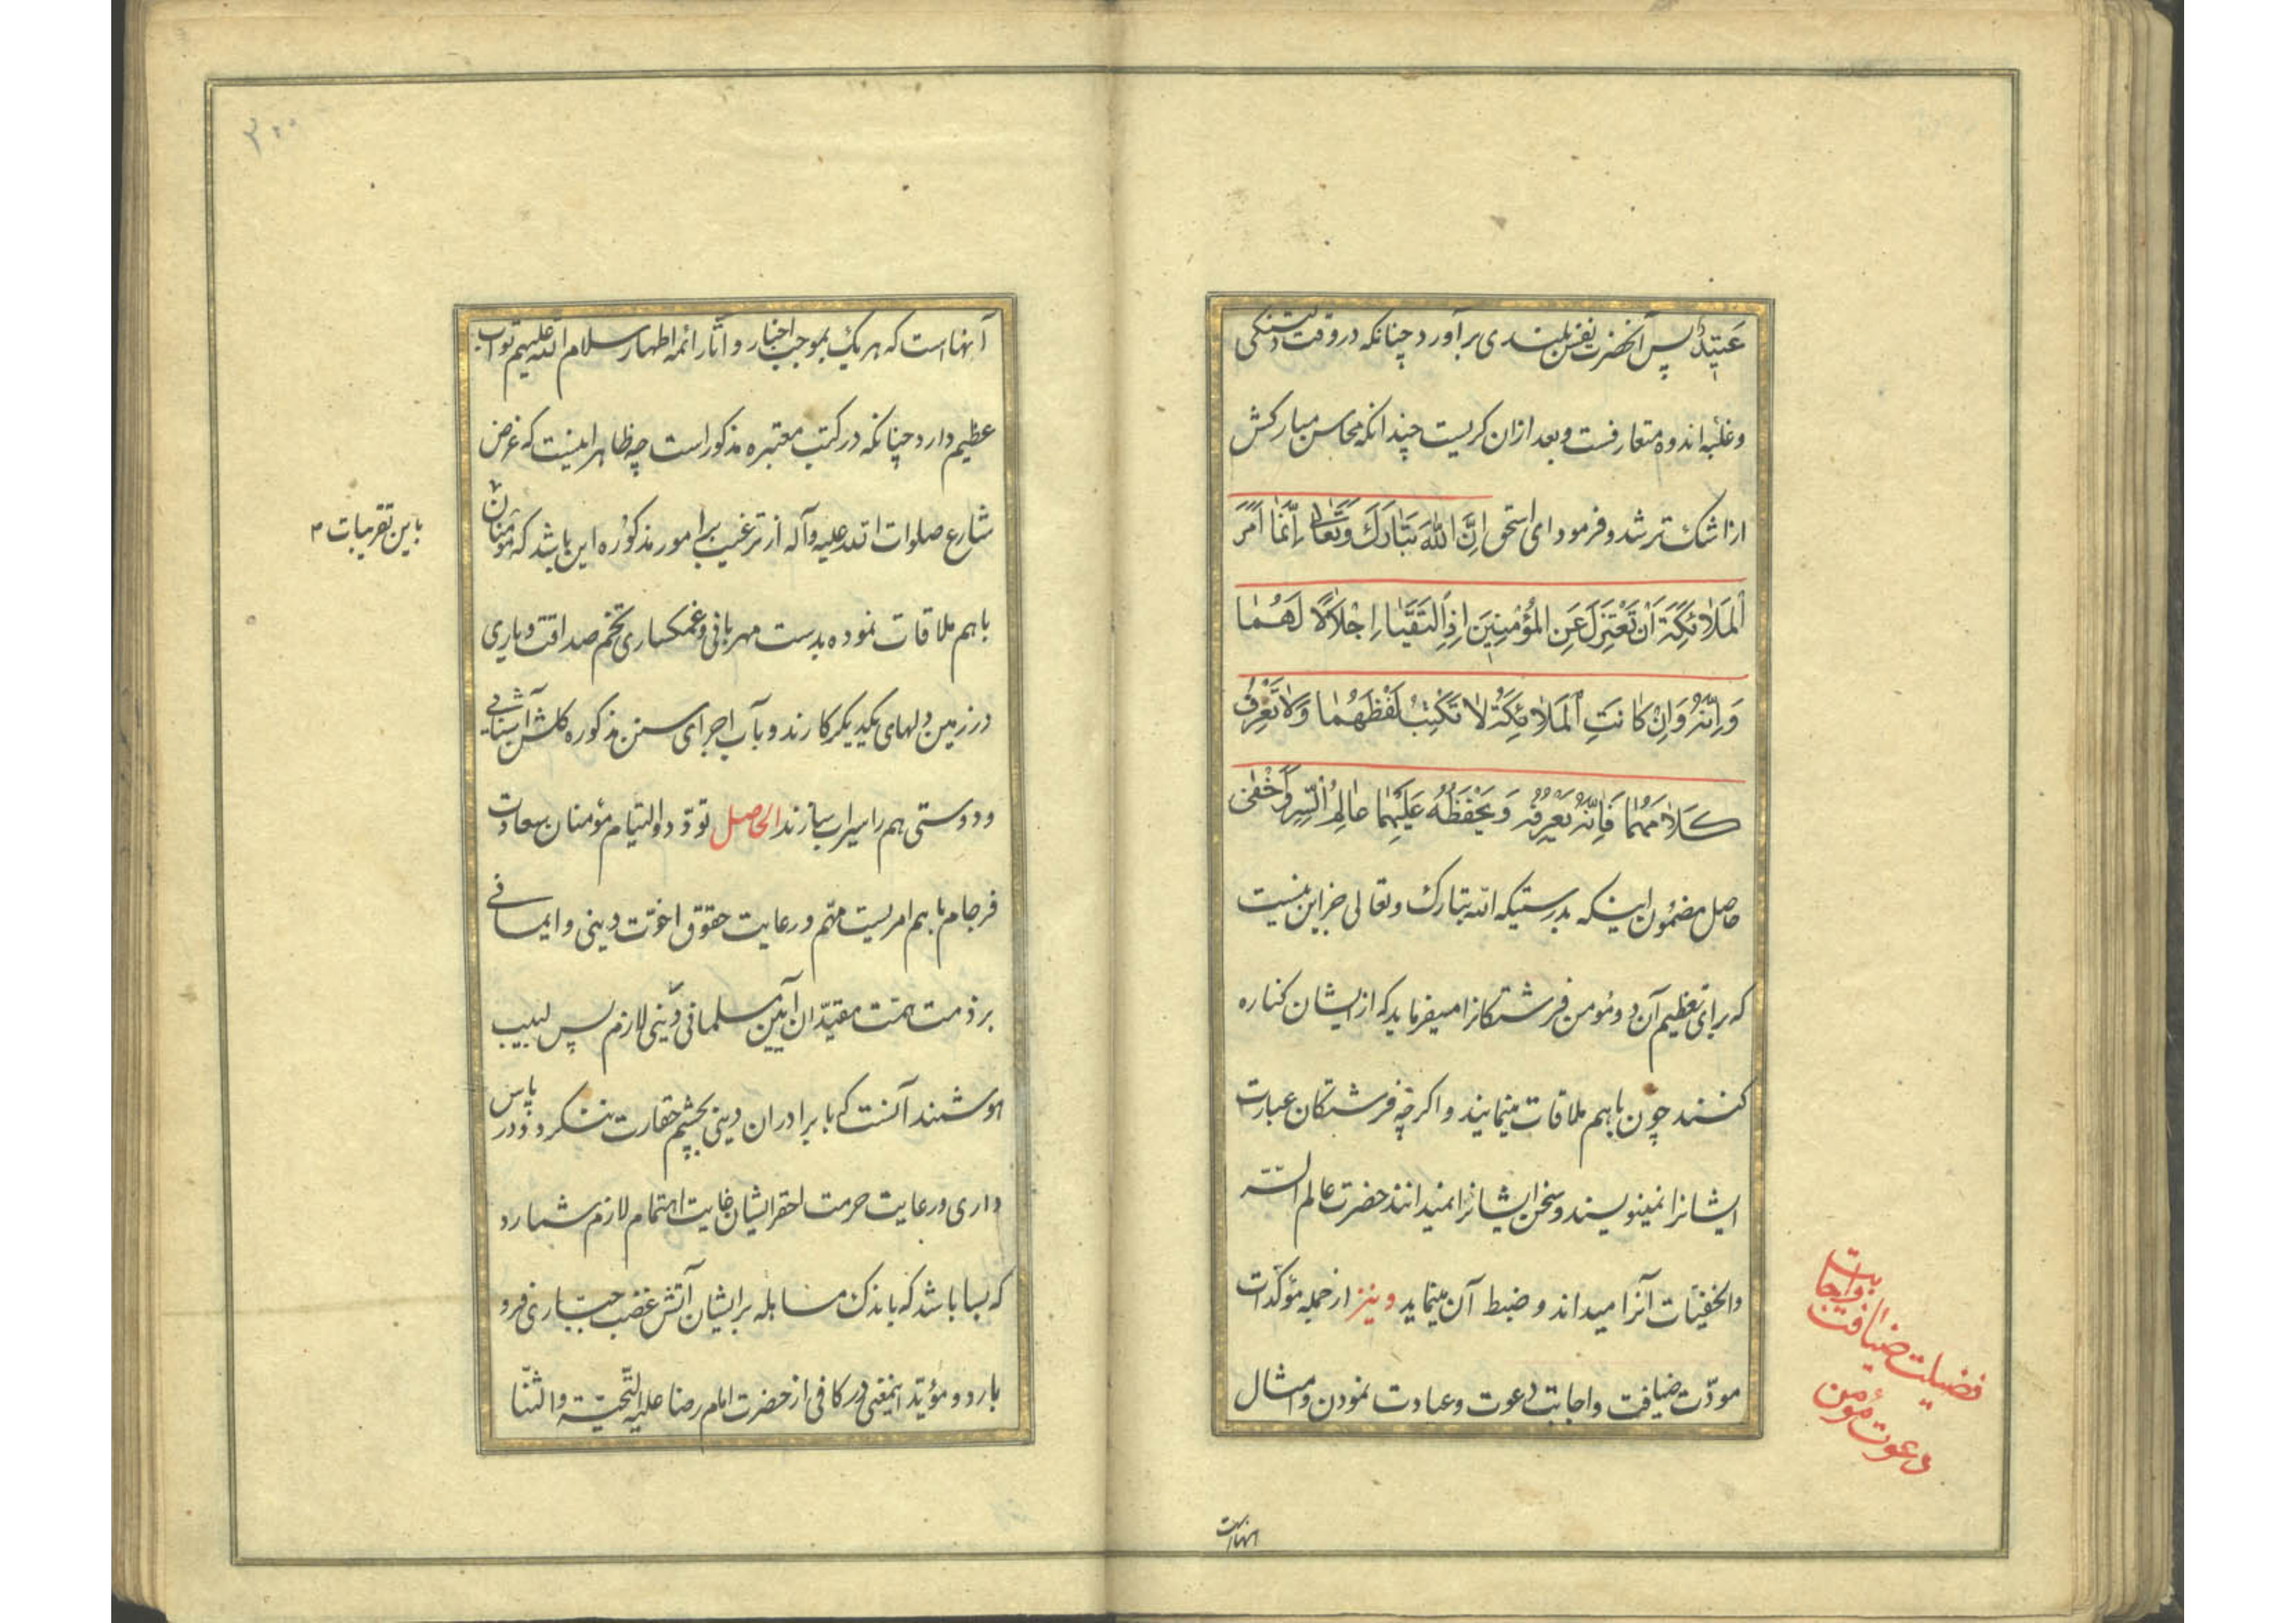 عَتِیْدٌ پس آنحضرت نفس بلندی برآورد چنانکه در وقت دلتنکی
و غلبه اندوه متعارفست و بعد ازان کریست چندانکه محاسن مبارکش
از اشک تر شد و فرمود ای اسحق اِنَّ اللّٰهَ تَبَارَكَ وَتَعَالٰی اِنَّمَا اَمَرَ
اَلْمَلٰائِکَةَ اَنْ تَعْتَزِلَ عَنِ الْمُؤْمِنِیَنِ اِذَا الْتَقَیَا اِجْلَالًا لَهُمَا
وَاِنَّهُ وَاِنْ کَانَتِ اَلْمَلٰائِکَةُ لٰا تَکْتُبُ لَفْظَهُمَا وَلٰا تَعْرِفُ
کَلٰامَهُمَا فَاِنَّهُ یَعْرِفُهُ وَیَحْفَظُهُ عَلَیْهِمَا عَالِمُ السِّرِّ وَاَخْفٰی
حاصل مضمون اینکه بدرستیکه الله تبارک و تعالی جز این نیست
که برای تعظیم آن دو مؤمن فرشتکانرا میفرماید که از ایشان کناره
کنند چون باهم ملاقات مینمایند و اکرچه فرشتکان عبارت
ایشانرا نمینویسند و سخن ایشانرا نمیدانند حضرت عالم السّر
والخفیّات آنرا میداند و ضبط آن مینماید و نیز از جمله مؤکدات
مودّت ضیافت و اجابت دعوت و عیادت نمودن و امثال
فضیلت ضیافت و اجابت
دعوت مؤمن
آنهااست
۳۰۰
آنهااست که هریک بموجب اخبار و آثار ائمه اطهار سلام الله علیهم ثواب
عظیم دارد چنانکه در کتب معتبره مذکور است چه ظاهر اینست که غرض
شارع صلوات الله علیه و آله از ترغیب برامور مذکوره این باشد که مؤمنان
باین تقریبات
باهم ملاقات نموده بدست مهربانی و غمکساری تخم صداقت و یاری
در زمین دلهای یکدیکر کارند و بآب اجرای سنن مذکوره کلشن آشنایی
و دوستی هم را سیراب سازند الحاصل تودّد و التیام مؤمنان سعادت
فرجام باهم امریست مهم و رعایت حقوق اخوّت دینی و ایمانی
بر ذمت همّت مقیّدان آیین مسلمانی دینی لازم پس لبیب
هوشمند آنست که با برادران دینی بچشم حقارت ننکرد و در پاس
داری و رعایت حرمت احقر ایشان غایت اهتمام لازم شمارد
که بسا باشد که باندک مساهله برایشان آتش غضب جبّاری فرو
بارد و مؤید اینمعنی در کافی از حضرت امام رضا علیه التّحیّة والثنّا